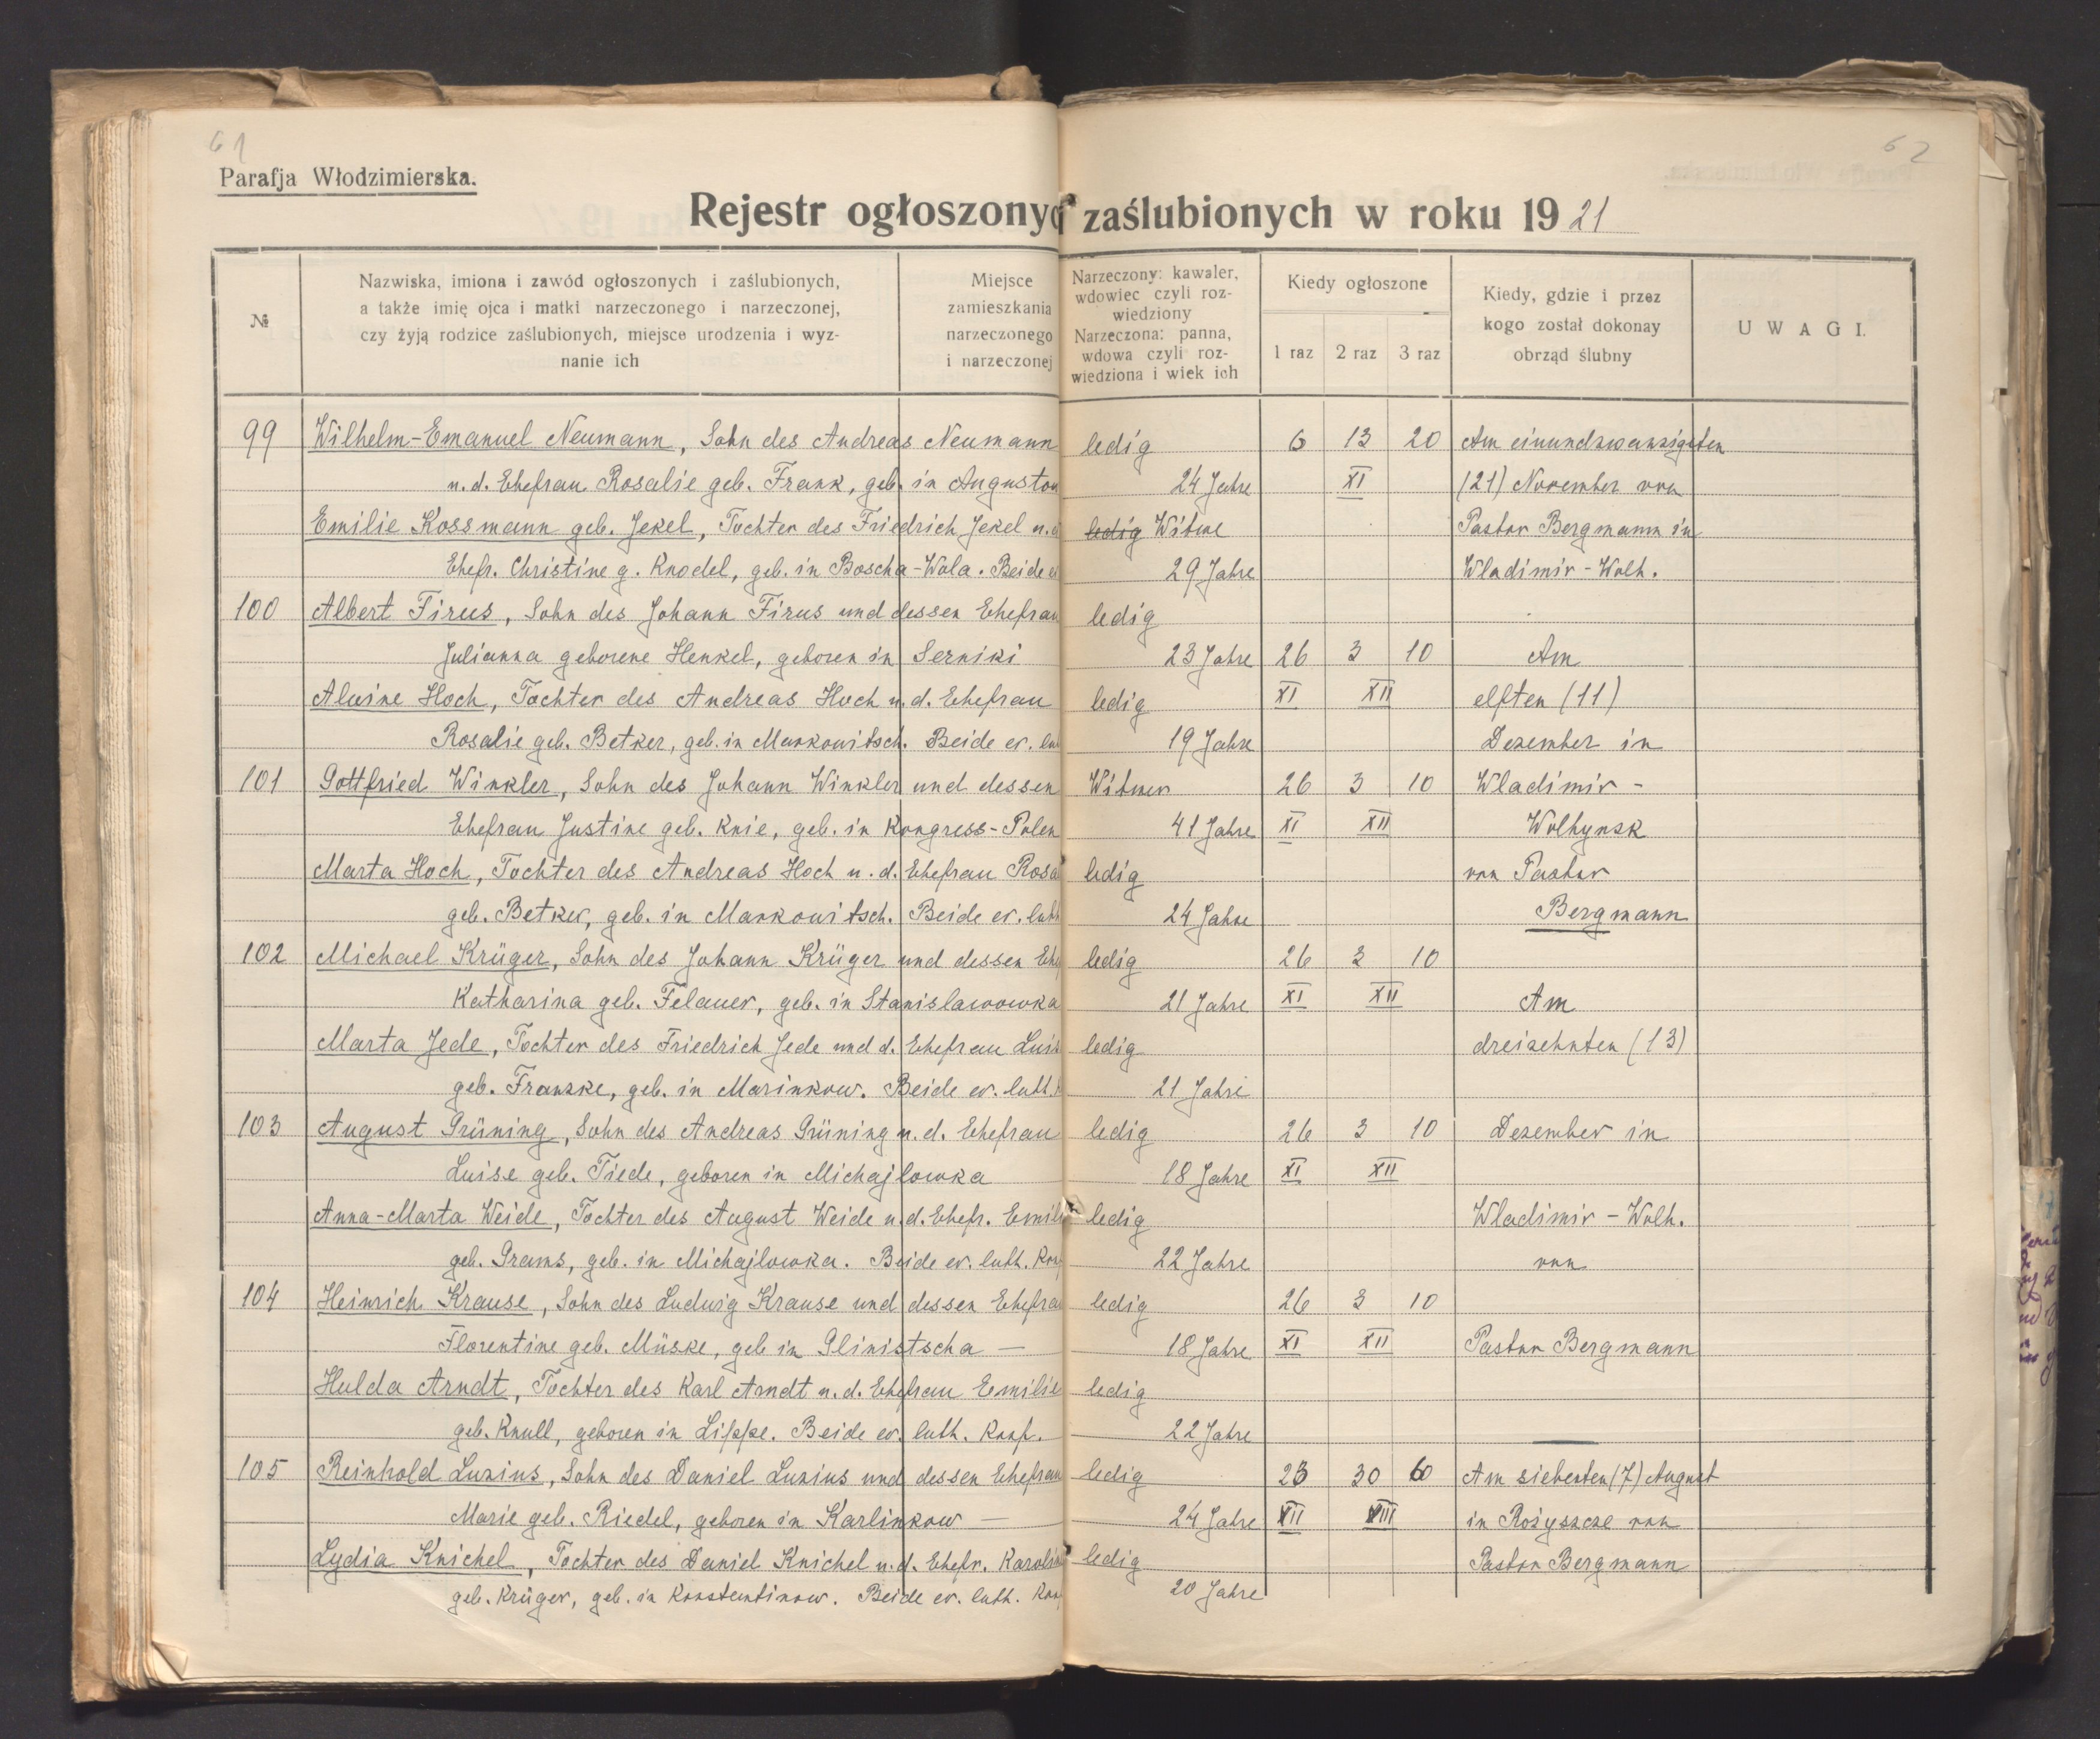 61
62
Parafja Włodzimierska.
Rejestr ogłoszonyc zaślubionych w roku 1921
№
Nazwiska, imiona i zawód ogłoszonych i zaślubionych,
a także imię ojca i matki narzeczonego i narzeczonej,
czy żyją rodzice zaślubionych, miejsce urodzenia i wyz-
nanie ich
Miejsce
zamieszkania
narzeczonego
i narzeczonej
Narzeczony: kawaler,
wdowiec czyli roz-
wiedziony
Narzeczona: panna,
wdowa czyli roz-
wiedziona i wiek ich
Kiedy ogłoszone
1 raz 2 raz 3 raz
Kiedy, gdzie i przez
kogo został dokonay
obrząd ślubny
UWAGI.
99 Wilhelm-Emanuel Neumann, Sohn des Andreas Neumann ledig 6 13 20 Am einundzwanzigsten
u. d. Ehefrau Rosalie geb. Frank, geb. in Auguston 24 Jahre XI (21) November von
Emilie Kossmann geb. Jekel, Tochter des Friedrich Jekel u. ledig Witwe Pastor Bergmann in
Ehefr. Christine g. Knodel, geb. in Boscha-Wola. Beide 29 Jahre Wladimir-Wolh.
100 Albert Firus, Sohn des Johann Firus und dessen Ehefrau ledig
Julianna geborene Henkel, geboren in Serniki 23 Jahre 26 3 10 Am
Alwine Hoch, Tochter des Andreas Hoch u. d. Ehefrau ledig XI XII elften (11)
Rosalie geb. Betker, geb. in Markowitsch. Beide ev. lu 19 Jahre Dezember in
101 Gottfried Winkler, Sohn des Johann Winkler und dessen Witwer 26 3 10 Wladimir-
Ehefrau Justine geb. Knie, geb. in Kongress-Polen 41 Jahre XI XII Wolhynsk
Marta Hoch, Tochter des Andreas Hoch u. d. Ehefrau Rosa ledig von Pastor
geb. Betker, geb. in Markowitsch. Beide ev. luth 24 Jahre Bergmann
102 Michael Krüger, Sohn des Johann Krüger und dessen Ehe ledig 26 3 10
Katharina geb. Felauer, geb. in Stanislawowka 21 Jahre XI XII Am
Marta Jede, Tochter des Friedrich Jede und d. Ehefrau Luis ledig dreizehnten (13)
geb. Franzke, geb. in Marinkow. Beide ev. luth. 21 Jahre
103 August Grüning, Sohn des Andreas Grüning u. d. Ehefrau ledig 26 3 10 Dezember in
Luise geb. Tiede, geboren in Michajlowka 18 Jahre XI XII
Anna-Marta Weide, Tochter des August Weide u. d. Ehefr. Emili ledig Wladimir-Wolh.
geb. Grams, geb. in Michajlowka. Beide ev. luth. Kon 22 Jahre von
104 Heinrich Krause, Sohn des Ludwig Krause und dessen Ehefra ledig 26 3 10
Florentine geb. Müske, geb in Glinistscha — 18 Jahre XI XII Pastor Bergmann
Hulda Arndt, Tochter des Karl Arndt u. d. Ehefrau Emilie ledig
geb. Knull, geboren in Lippe. Beide ev. luth. Konf. 22 Jahre
105 Reinhold Luzius, Sohn des Daniel Luzius und dessen Ehefrau ledig 23 30 6 Am siebenten (7) August
Marie geb. Riedel, geboren in Karlinkow — 24 Jahre VII VIII in Rożyszcze von
Lydia Knichel, Tochter des Daniel Knichel u. d. Ehefr. Karoli ledig Pastor Bergmann
geb. Krüger, geb. in Konstantinow. Beide ev. luth. Kon 20 Jahre